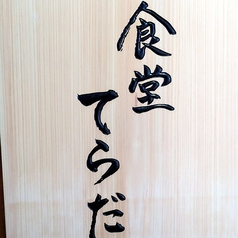 食堂
てらだ